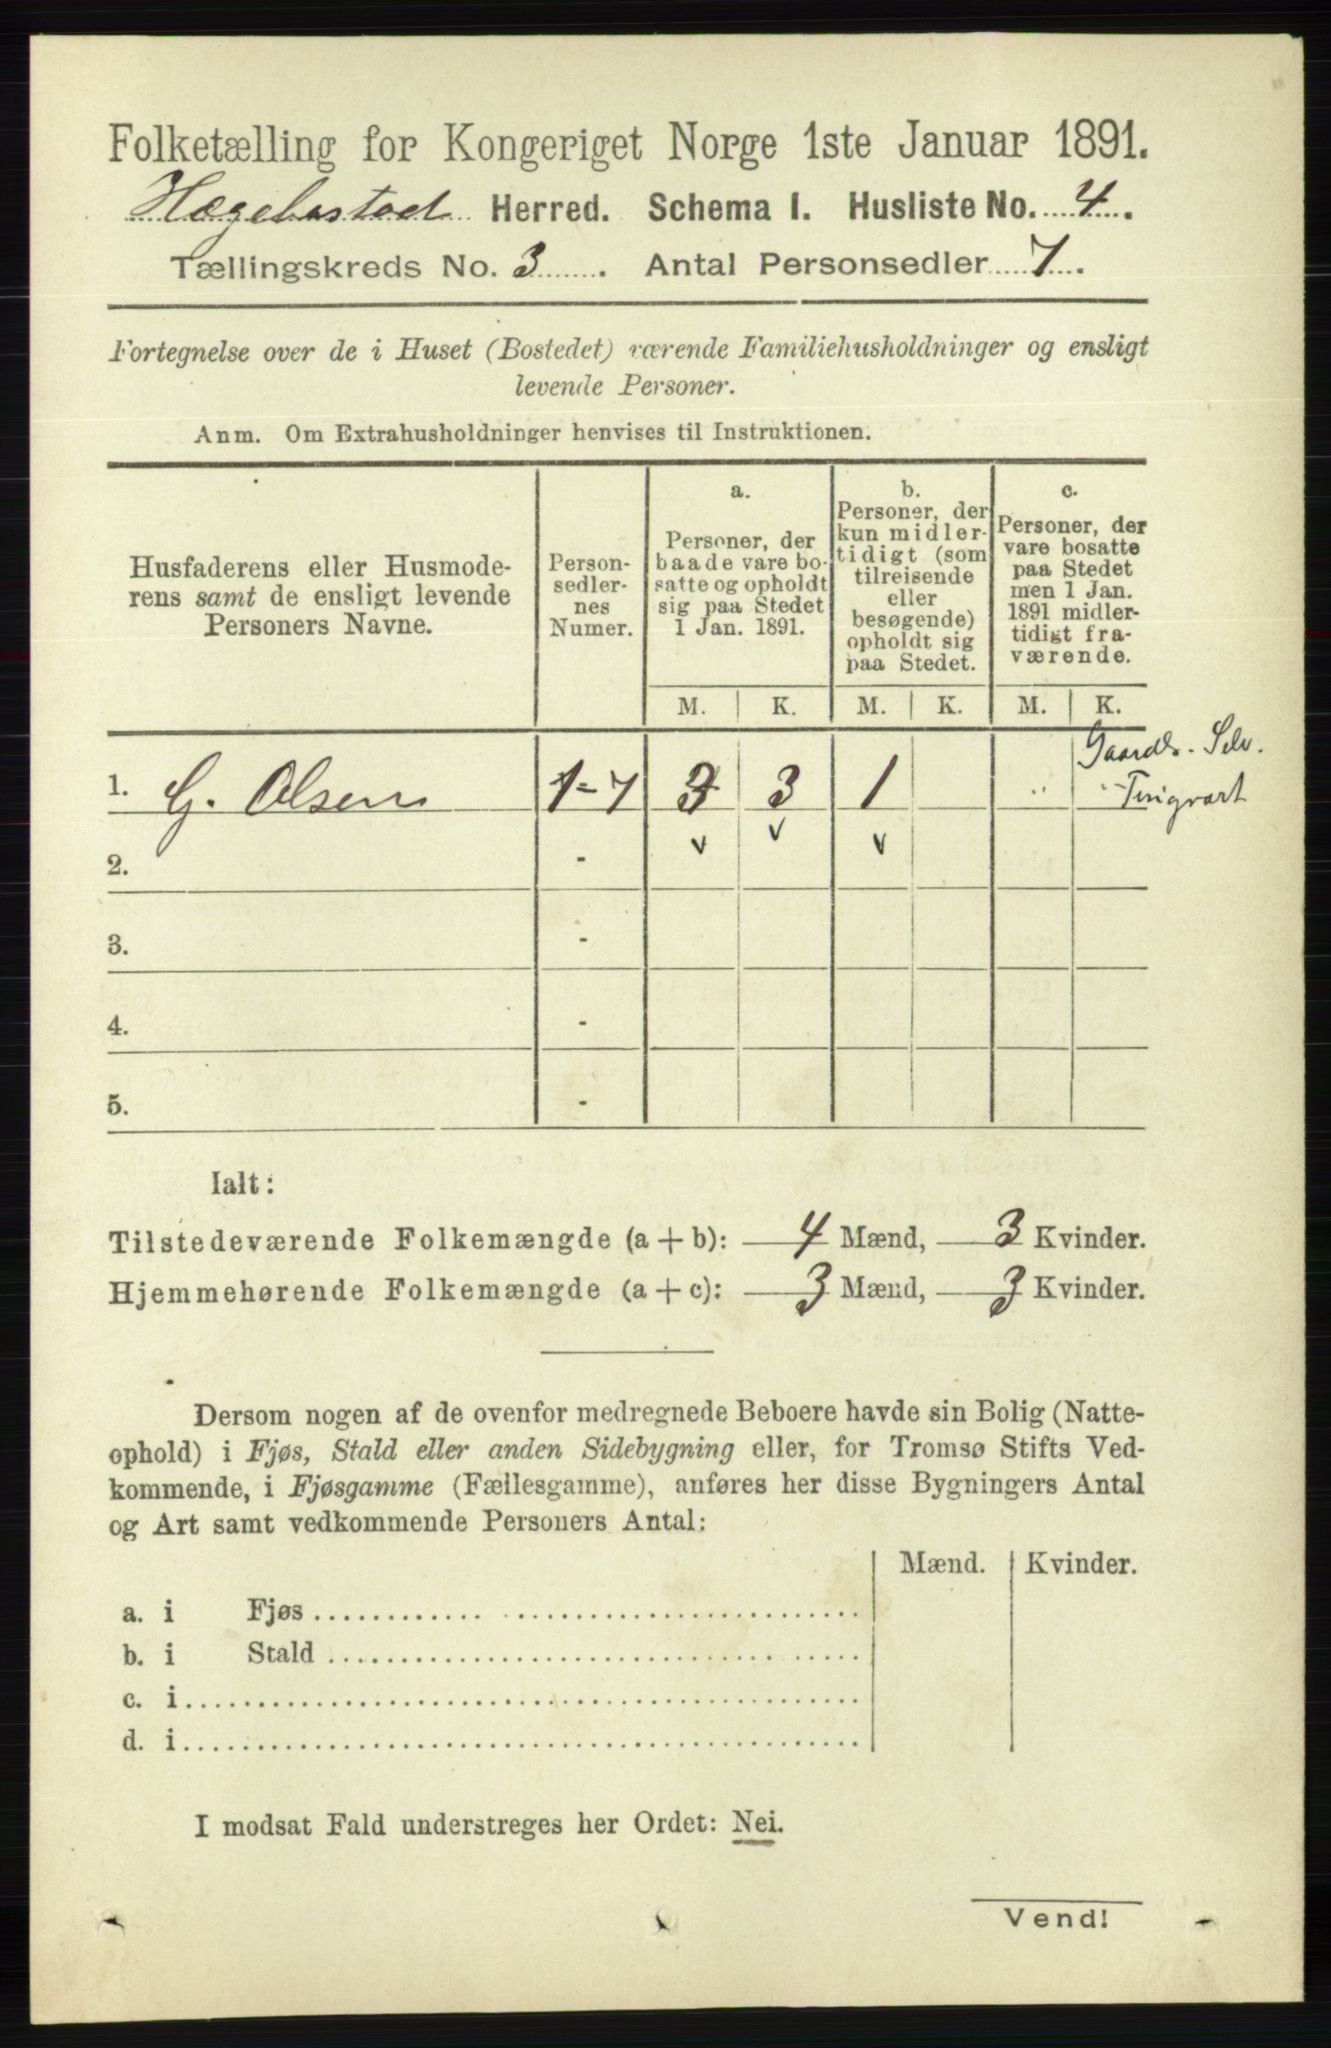 Folketælling for Kongeriget Norge 1ste Januar 1891.
Hægebostad Herred. Schema I. Husliste No. 4.
Tællingskreds No. 3. Antal Personsedler 7.
Fortegnelse over de i Huset (Bostedet) værende Familiehusholdninger og ensligt
levende Personer.
Anm. Om Extrahusholdninger henvises til Instruktionen.
Husfaderens eller Husmode-
rens samt de ensligt levende
Personers Navne.
Person-
sedler-
nes
Numer.
a.
Personer, der
baade vare bo-
satte og opholdt
sig paa Stedet
1 Jan. 1891.
b.
Personer, der
kun midler-
tidigt (som
tilreisende
eller
besøgende)
opholdt sig
paa Stedet.
c.
Personer, der
vare bosatte
paa Stedet
men 1 Jan.
1891 midler-
tidigt fra-
værende.
M. K. M. K. M. K.
1. G. Olsen 1-7 3 3 1
Gaardb. Selv.
v v v
2. -
3. -
4. -
5. -
Ialt:
Tilstedeværende Folkemængde (a + b): 4 Mænd, 3 Kvinder.
Hjemmehørende Folkemængde (a + c): 3 Mænd, 3 Kvinder.
Dersom nogen af de ovenfor medregnede Beboere havde sin Bolig (Natte-
ophold) i Fjøs, Stald eller anden Sidebygning eller, for Tromsø Stifts Ved-
kommende, i Fjøsgamme (Fællesgamme), anføres her disse Bygningers Antal
og Art samt vedkommende Personers Antal:
Mænd. Kvinder.
a. i Fjøs
b. i Stald
c. i
d. i
I modsat Fald understreges her Ordet: Nei.
Vend!